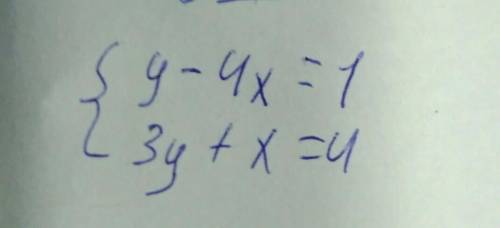 { y - 4x = 1
3y + x = 4